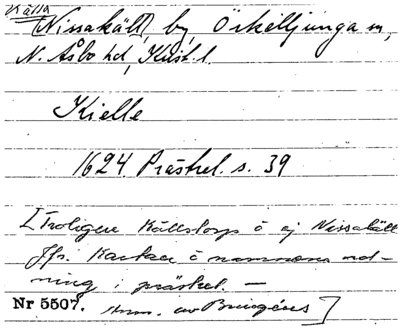 Källa
(Nissakält), by, Örkelljunga sn,
N. Åsbo hd, Krist. l.
Kielle
1624 Prästrel. s. 39
[Troligen Källstorp o ej Nissakält
Jfr. Kartan o namnens ord-
ning i prästrel. —
Nr 5507. Anm. av Bringéus]